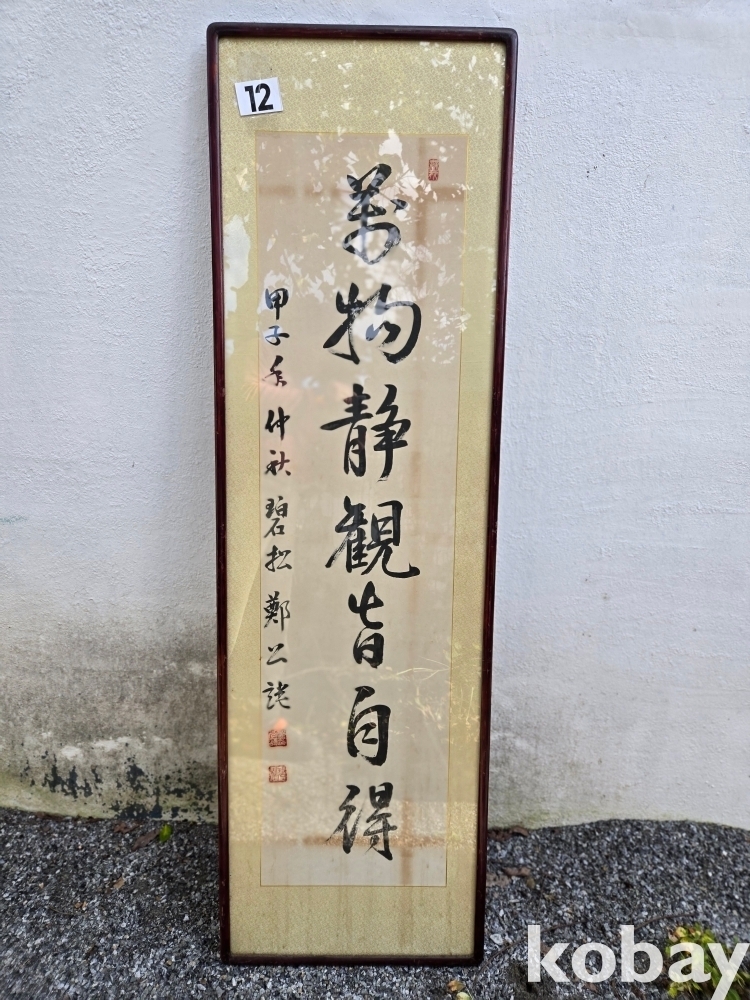 12
萬物静観皆自得
甲子年仲秋碧松鄭公
kobay